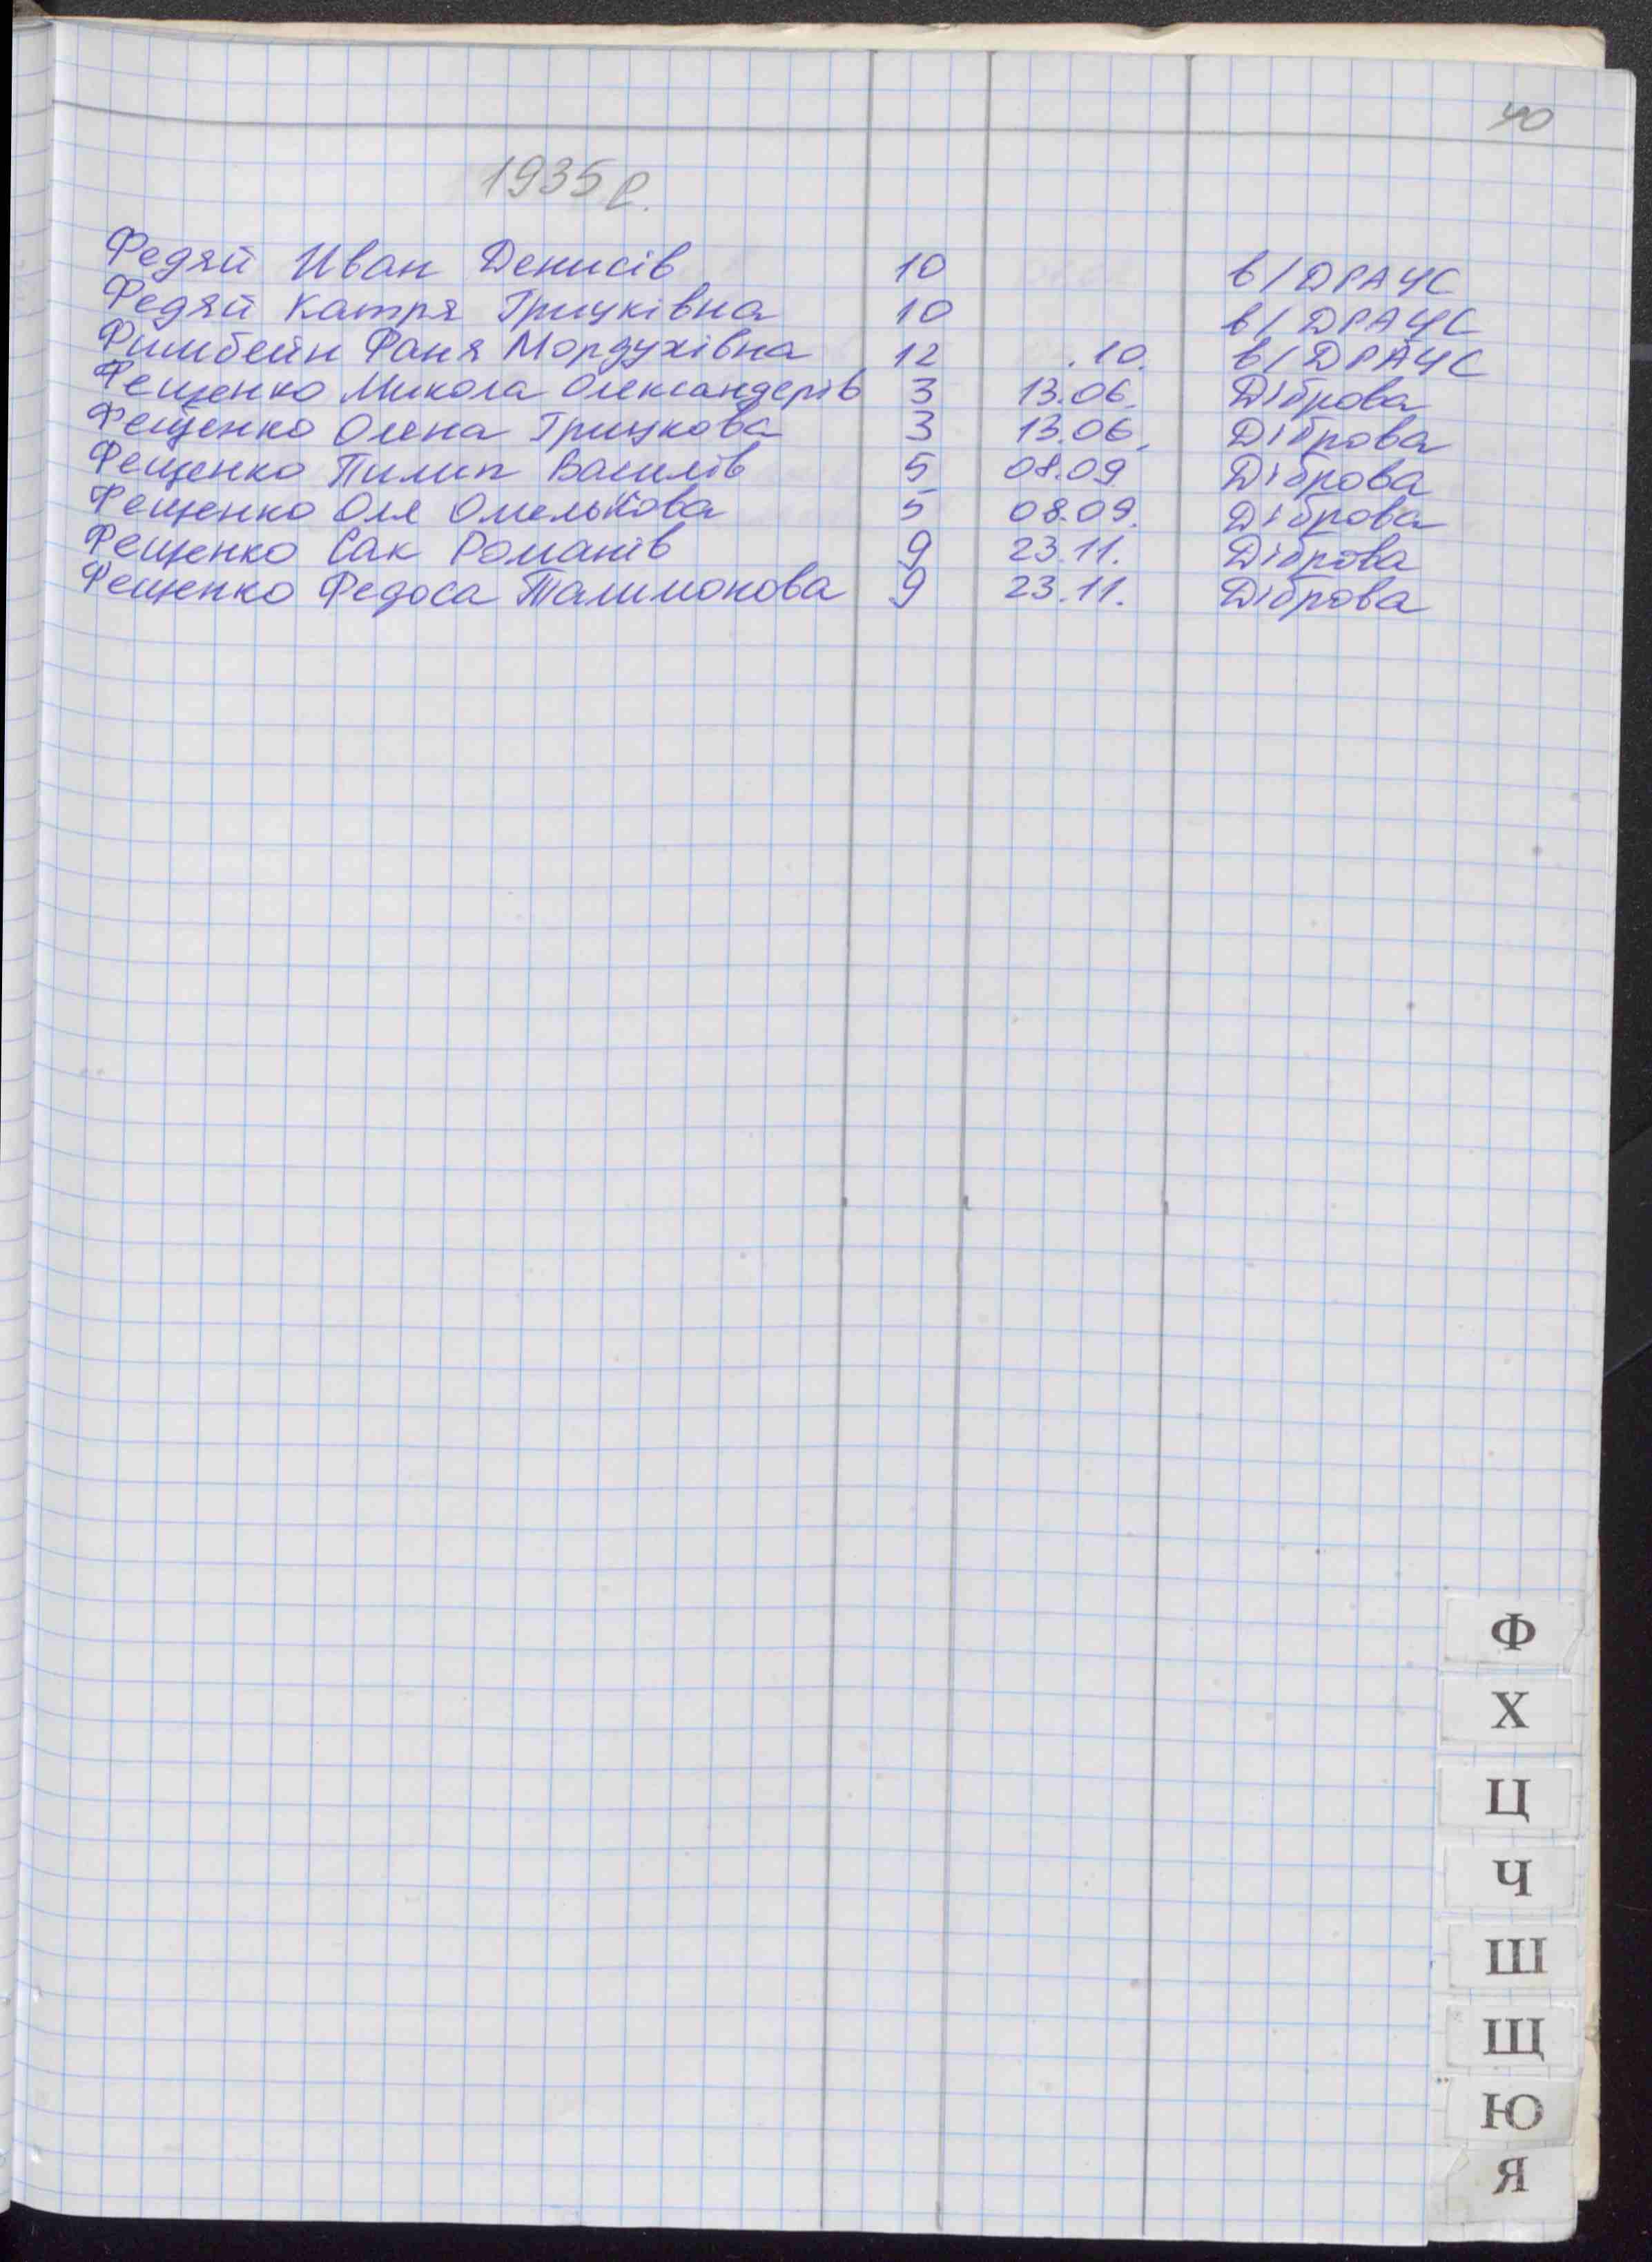 40
1935 р.
Федяй Иван Денисів 10 в/ДРАЦС
Федяй Катря Грицківна 10 в/ДРАЦС
Фишбейн Фаня Мордухівна 12 .10. в/ДРАЦС
Фещенко Микола Олександерів 3 13.06. Діброва
Фещенко Олена Грицкова 3 13.06. Діброва
Фещенко Пилип Василів 5 08.09 Діброва
Фещенко Оля Омелькова 5 08.09. Діброва
Фещенко Сак Романів 9 23.11. Діброва
Фещенко Федоса Талимонова 9 23.11. Діброва
Ф
Х
Ц
Ч
Ш
Щ
Ю
Я